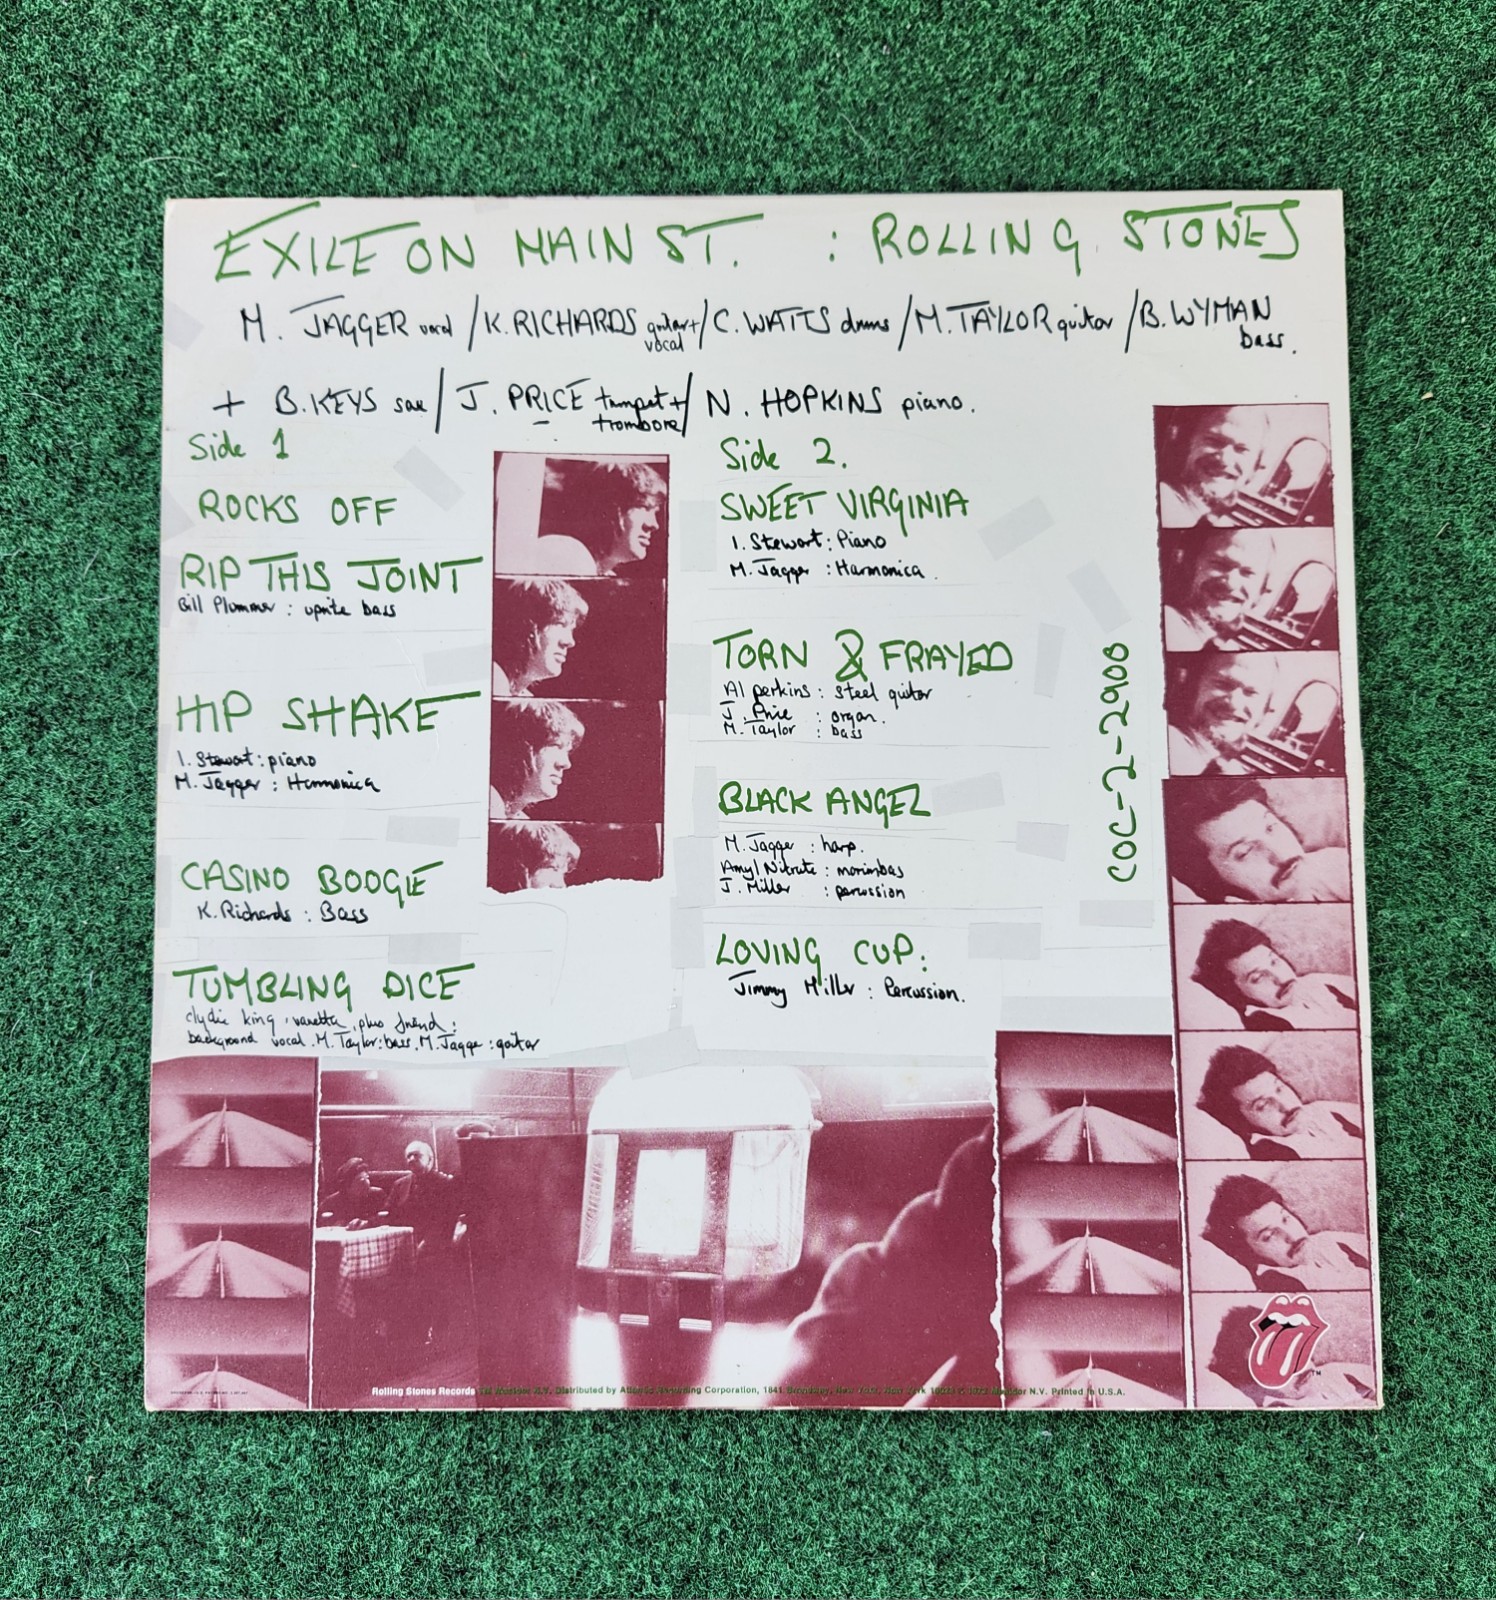 EXILE ON MAIN ST. : ROLLING STONES
M. JAGGER vocal / K. RICHARDS guitar + vocal / C. WATTS drums / M. TAYLOR guitar / B. WYMAN bass.
+ B. KEYS sax / J. PRICE trumpet + trombone / N. HOPKINS piano.
Side 1
ROCKS OFF
RIP THIS JOINT
Bill Plummer : uprite bass
HIP SHAKE
I. Stewart : piano
M. Jagger : Harmonica
CASINO BOOGIE
K. Richards : Bass
TUMBLING DICE
clydie king, vanetta, plus friend :
background vocal. M. Taylor: bass. M. Jagger : guitar
Side 2.
SWEET VIRGINIA
I. Stewart : Piano
M. Jagger : Harmonica.
TORN & FRAYED
Al perkins : steel guitar
J. Price : organ.
M. Taylor : bass
BLACK ANGEL
M. Jagger : harp.
Amyl Nitrate : marimbas
J. Miller : percussion
LOVING CUP :
Jimmy Miller : Percussion.
COC-2-2900
Rolling Stones Records Distributed by Atlantic Recording Corporation, 1841 Broadway, New York, New York Printed in U.S.A.
TM